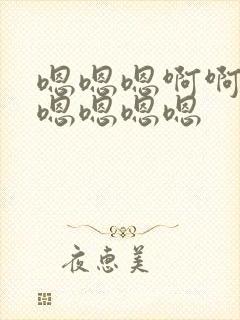 嗯嗯嗯啊啊
嗯嗯嗯嗯
夜恵美